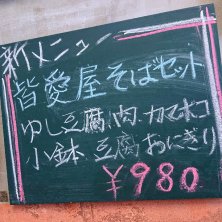 新メニュー
皆愛屋そばセット
ゆし豆腐、肉、カマボコ
小鉢、豆腐おにぎり
¥980